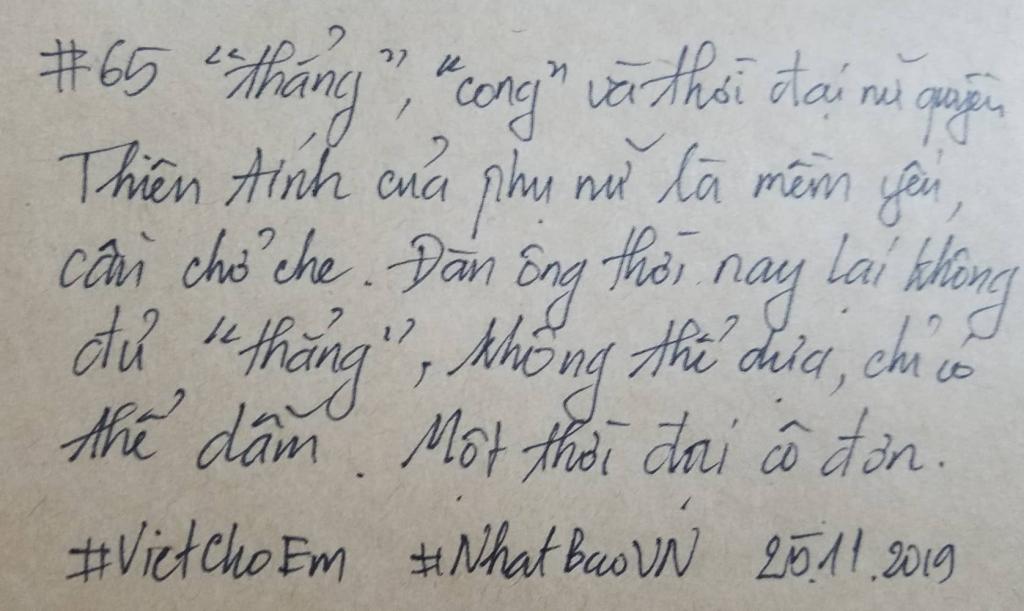 #65 "thẳng", "cong" và thời đại nữ quyền
Thiên tính của phụ nữ là mềm yếu,
cần chở che. Đàn ông thời nay lại không
đủ "thẳng", không thể dựa, chỉ có
thể dẫm. Một thời đại cô đơn.
#VietChoEm #NhatBaoVN 25.11.2019